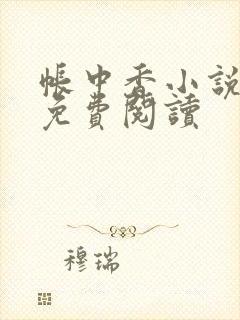 帳中香小說
免費閱讀
穆瑞